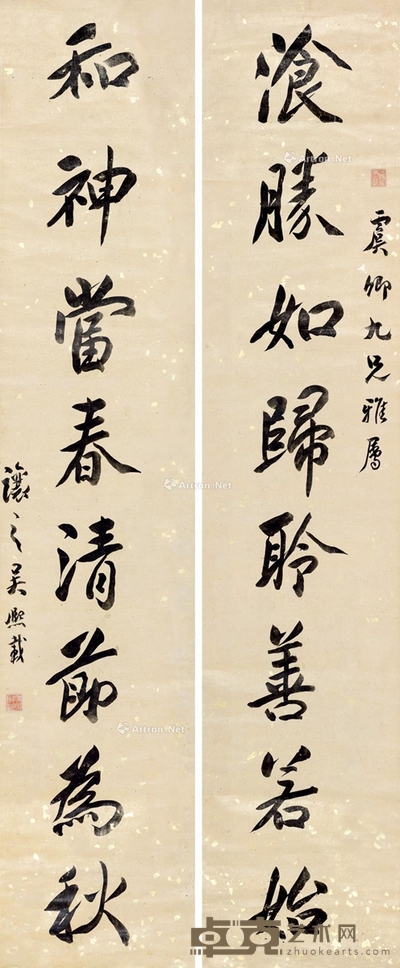 虞卿九兄雅屬
湌勝如歸聆善若始
和神當春清節為秋
讓之吳熙載
Artron.Net
Artron.Net
Artron.Net
Artron.Net
卓克艺术网
zhuokearts.com